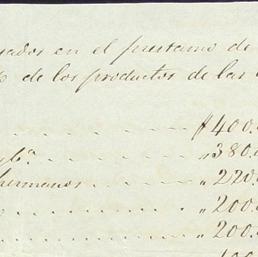 en el prestamo de
de los productos de las
$400.
y Cª „ 380.
hermanos „ 220.
„ 200.
„ 200.